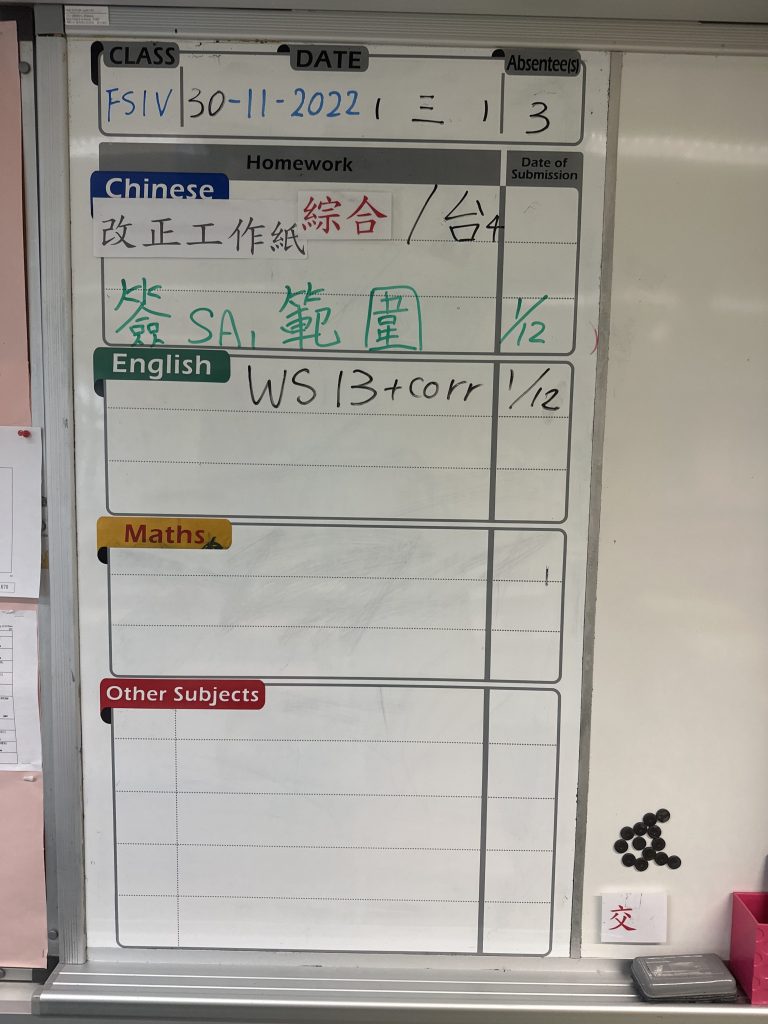 CLASS DATE Absentee(s)
FSIV 30-11-2022 ( 三 ) 3
Homework Date of Submission
Chinese
改正工作紙 綜合 / 台4
簽 SA1 範圍 1/12
English
WS 13 + corr 1/12
Maths
Other Subjects
交